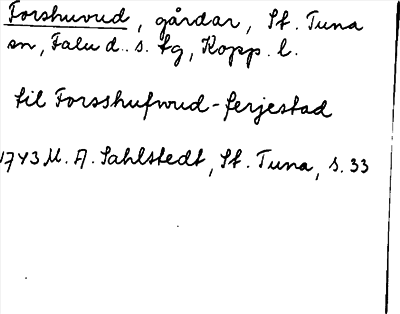 Forshuvud, gårdar, St. Tuna
sn, Falu d.s. tg, Kopp. l.
til Forsshufwud-ferjestad
1743 M. A. Sahlstedt, St. Tuna, s. 33